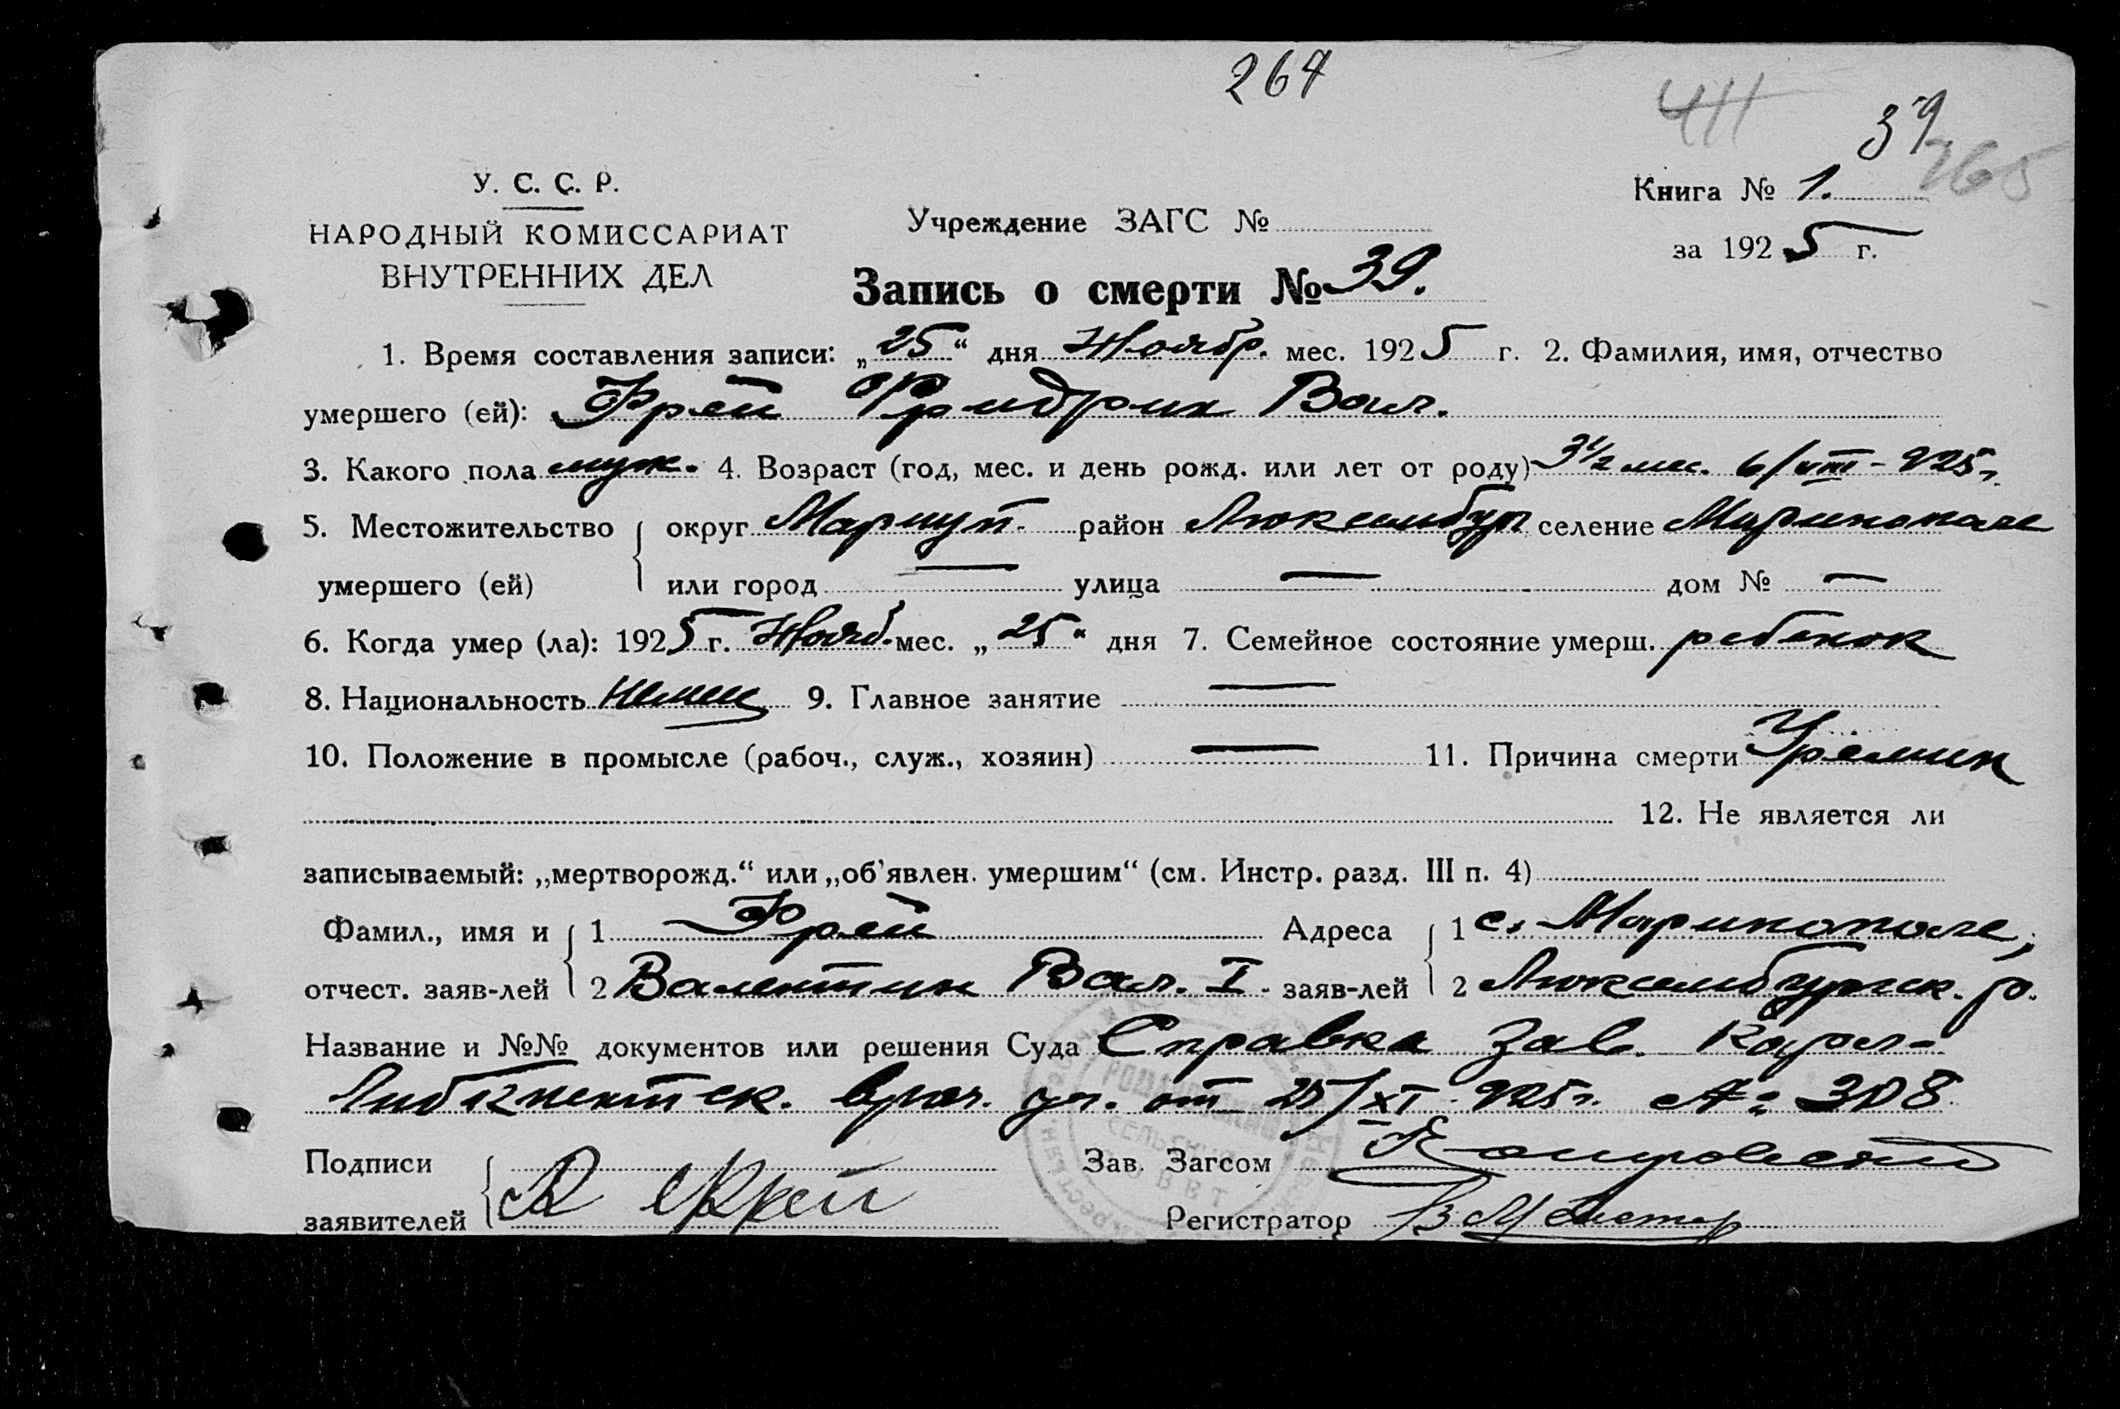 264
411
39
265
У. С. С. Р.
НАРОДНЫЙ КОМИССАРИАТ
ВНУТРЕННИХ ДЕЛ
Учреждение ЗАГС №
Книга № 1.
за 1925 г.
Запись о смерти № 39.
1. Время составления записи: „25“ дня Ноябр. мес. 1925 г. 2. Фамилия, имя, отчество
умершего (ей): Фрей Фридрих Вал.
3. Какого пола муж. 4. Возраст (год, мес. и день рожд. или лет от роду) 3½ мес. 6/VIII-925г.
5. Местожительство округ Мариуп. район Люксембург селение Мариинополе
умершего (ей) или город — улица — дом № —
6. Когда умер (ла): 1925 г. Нояб. мес. „25“ дня 7. Семейное состояние умерш. ребенок
8. Национальность немец 9. Главное занятие —
10. Положение в промысле (рабоч., служ., хозяин) — 11. Причина смерти Уремия
12. Не является ли
записываемый: „мертворожд.“ или „об'явлен. умершим“ (см. Инстр. разд. III п. 4)
Фамил., имя и 1 Фрей Адреса 1 с. Мариинополе,
отчест. заяв-лей 2 Валентин Вал. I. заяв-лей 2 Люксембургск. р.
Название и №№ документов или решения Суда Справка Зав. Карл-
Либкнехтск. врач. уч. от 25/XI 925г. № 308
Подписи Зав. Загсом
заявителей Фрей Регистратор
СЕЛЬСКИЙ
СОВЕТ